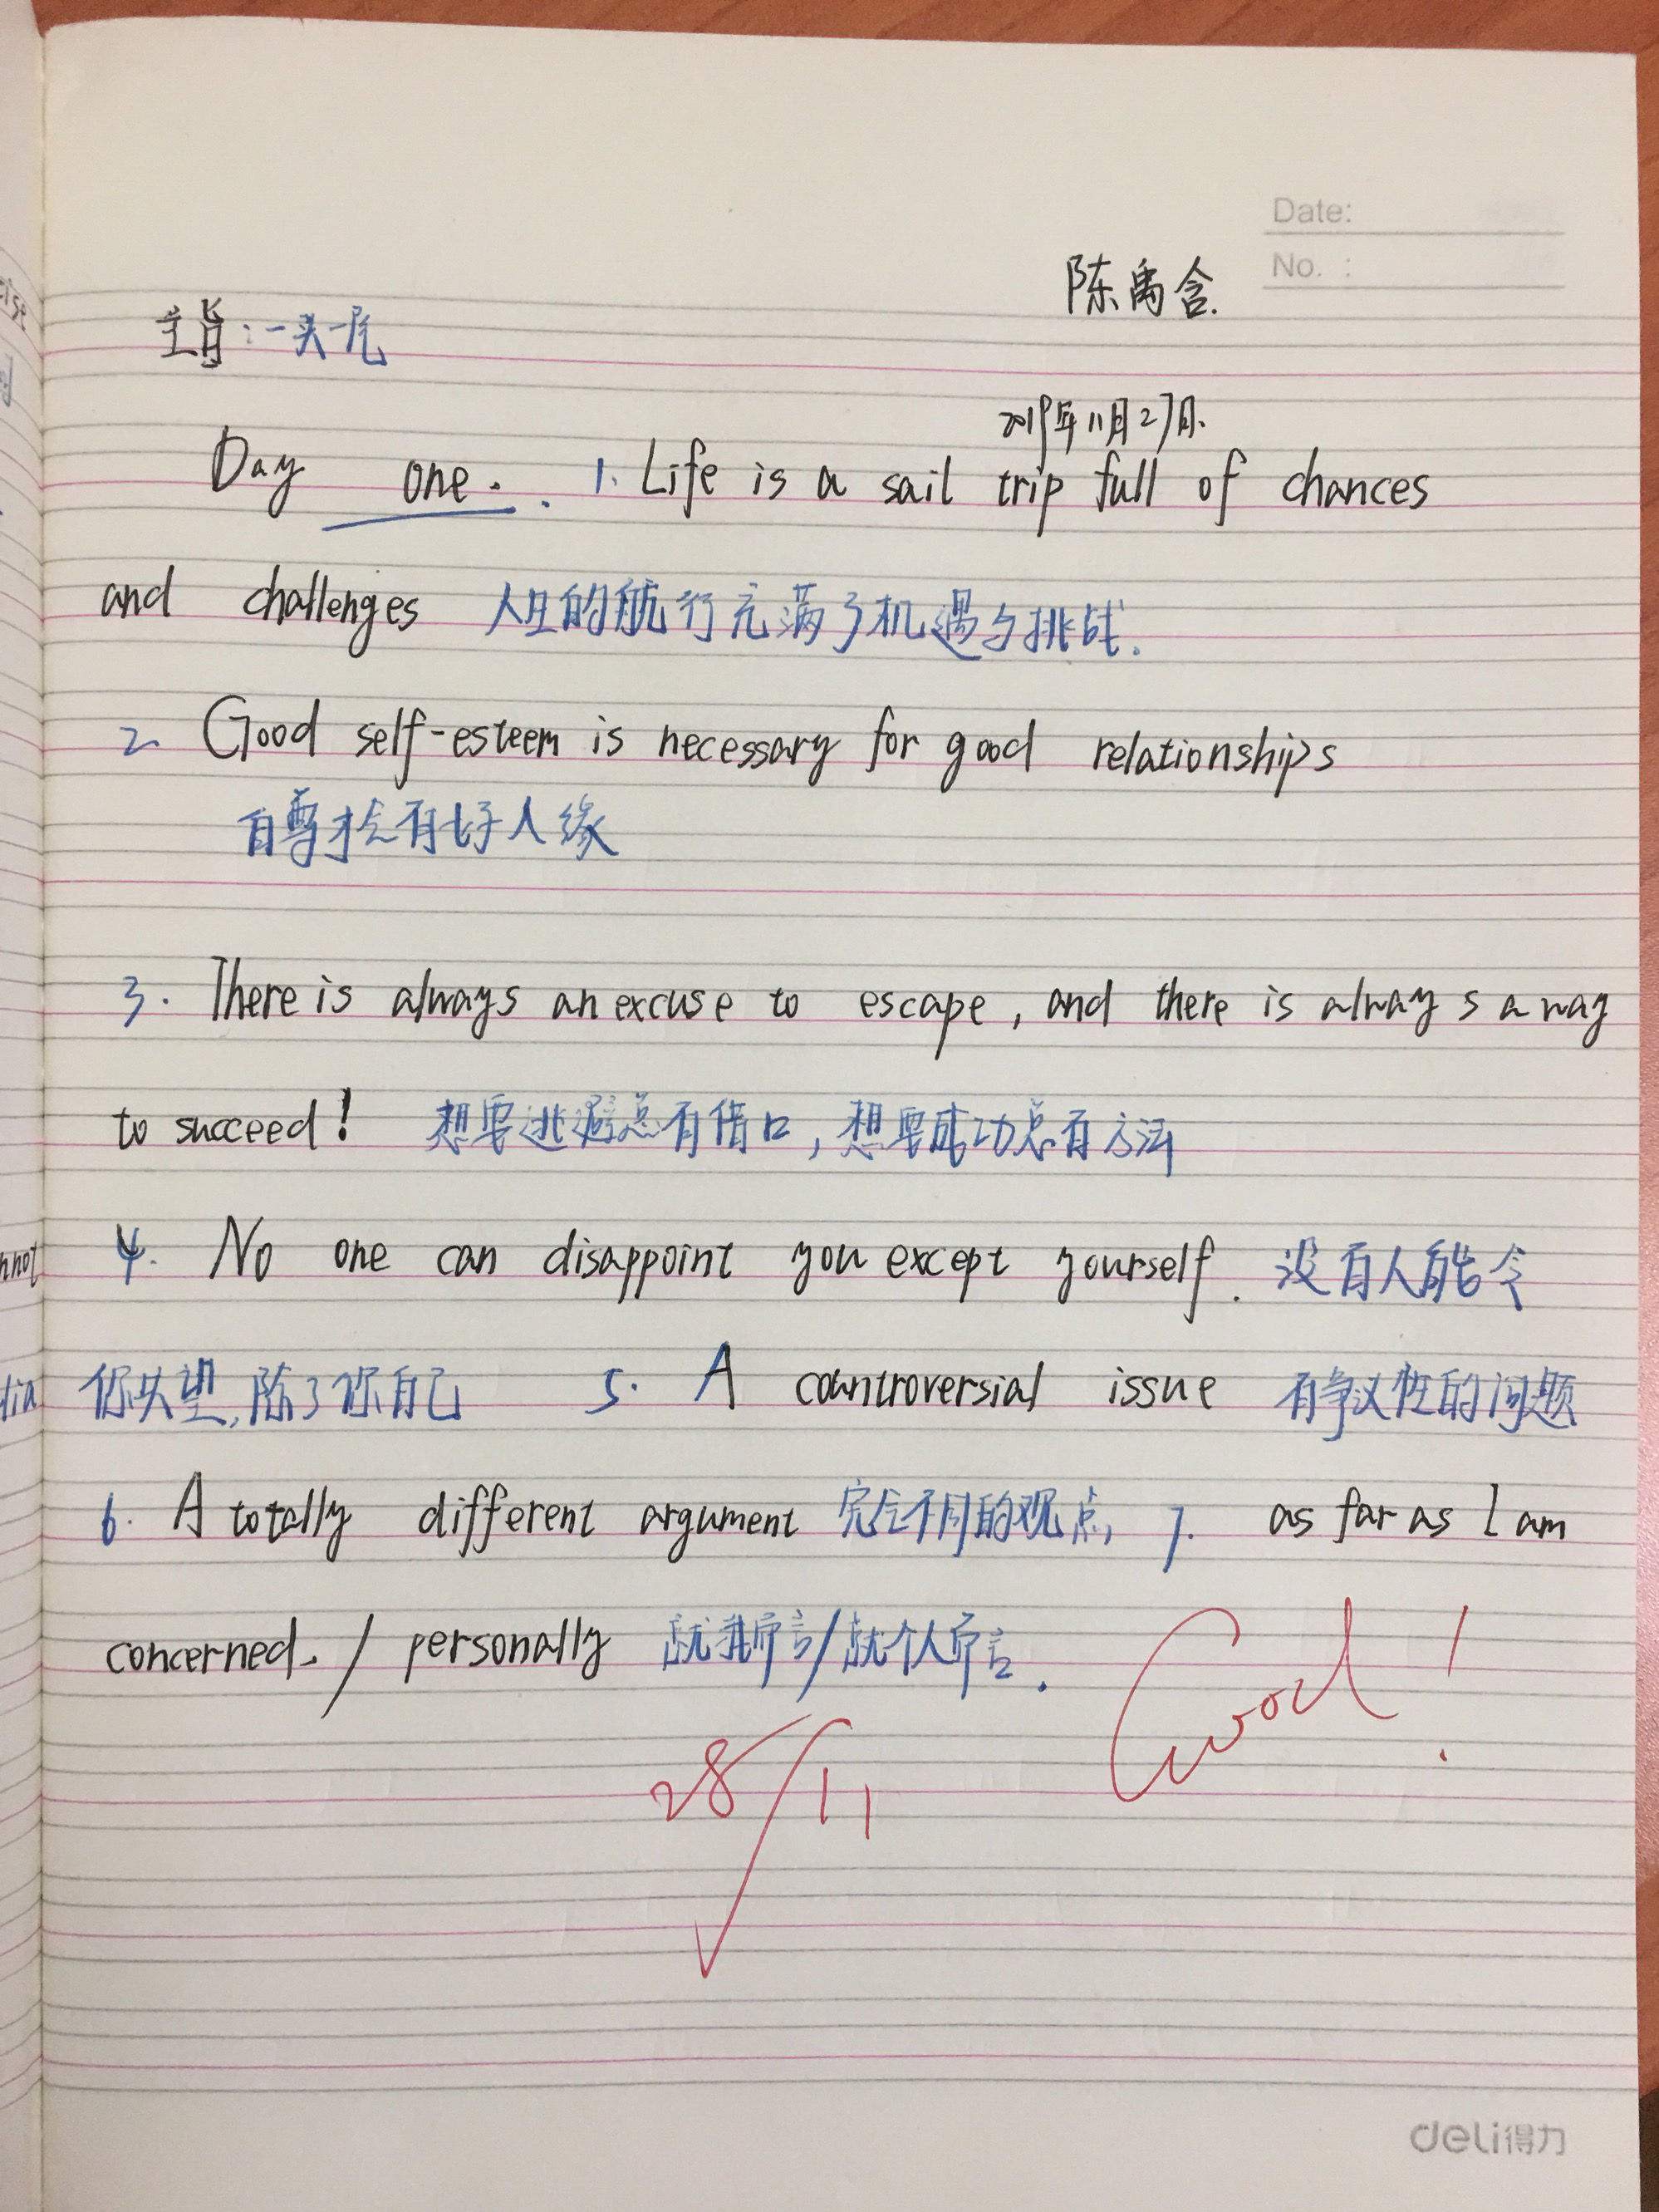 Date:
陈禹含.
No. :
主旨:一头一尾
2019年11月27日.
Day one. 1. Life is a sail trip full of chances
and challenges 人生的航行充满了机遇与挑战.
2 Good self-esteem is necessary for good relationships
自尊才会有好人缘
3. There is always an excuse to escape, and there is always a way
to succeed! 想要逃避总有借口,想要成功总有方法
4. No one can disappoint you except yourself. 没有人能令
你失望,除了你自己 5. A countroversial issue 有争议性的问题
6. A totally different argument 完全不同的观点 7. as far as I am
concerned. / personally 就我而言/就个人而言.
Good!
28/11
deli得力